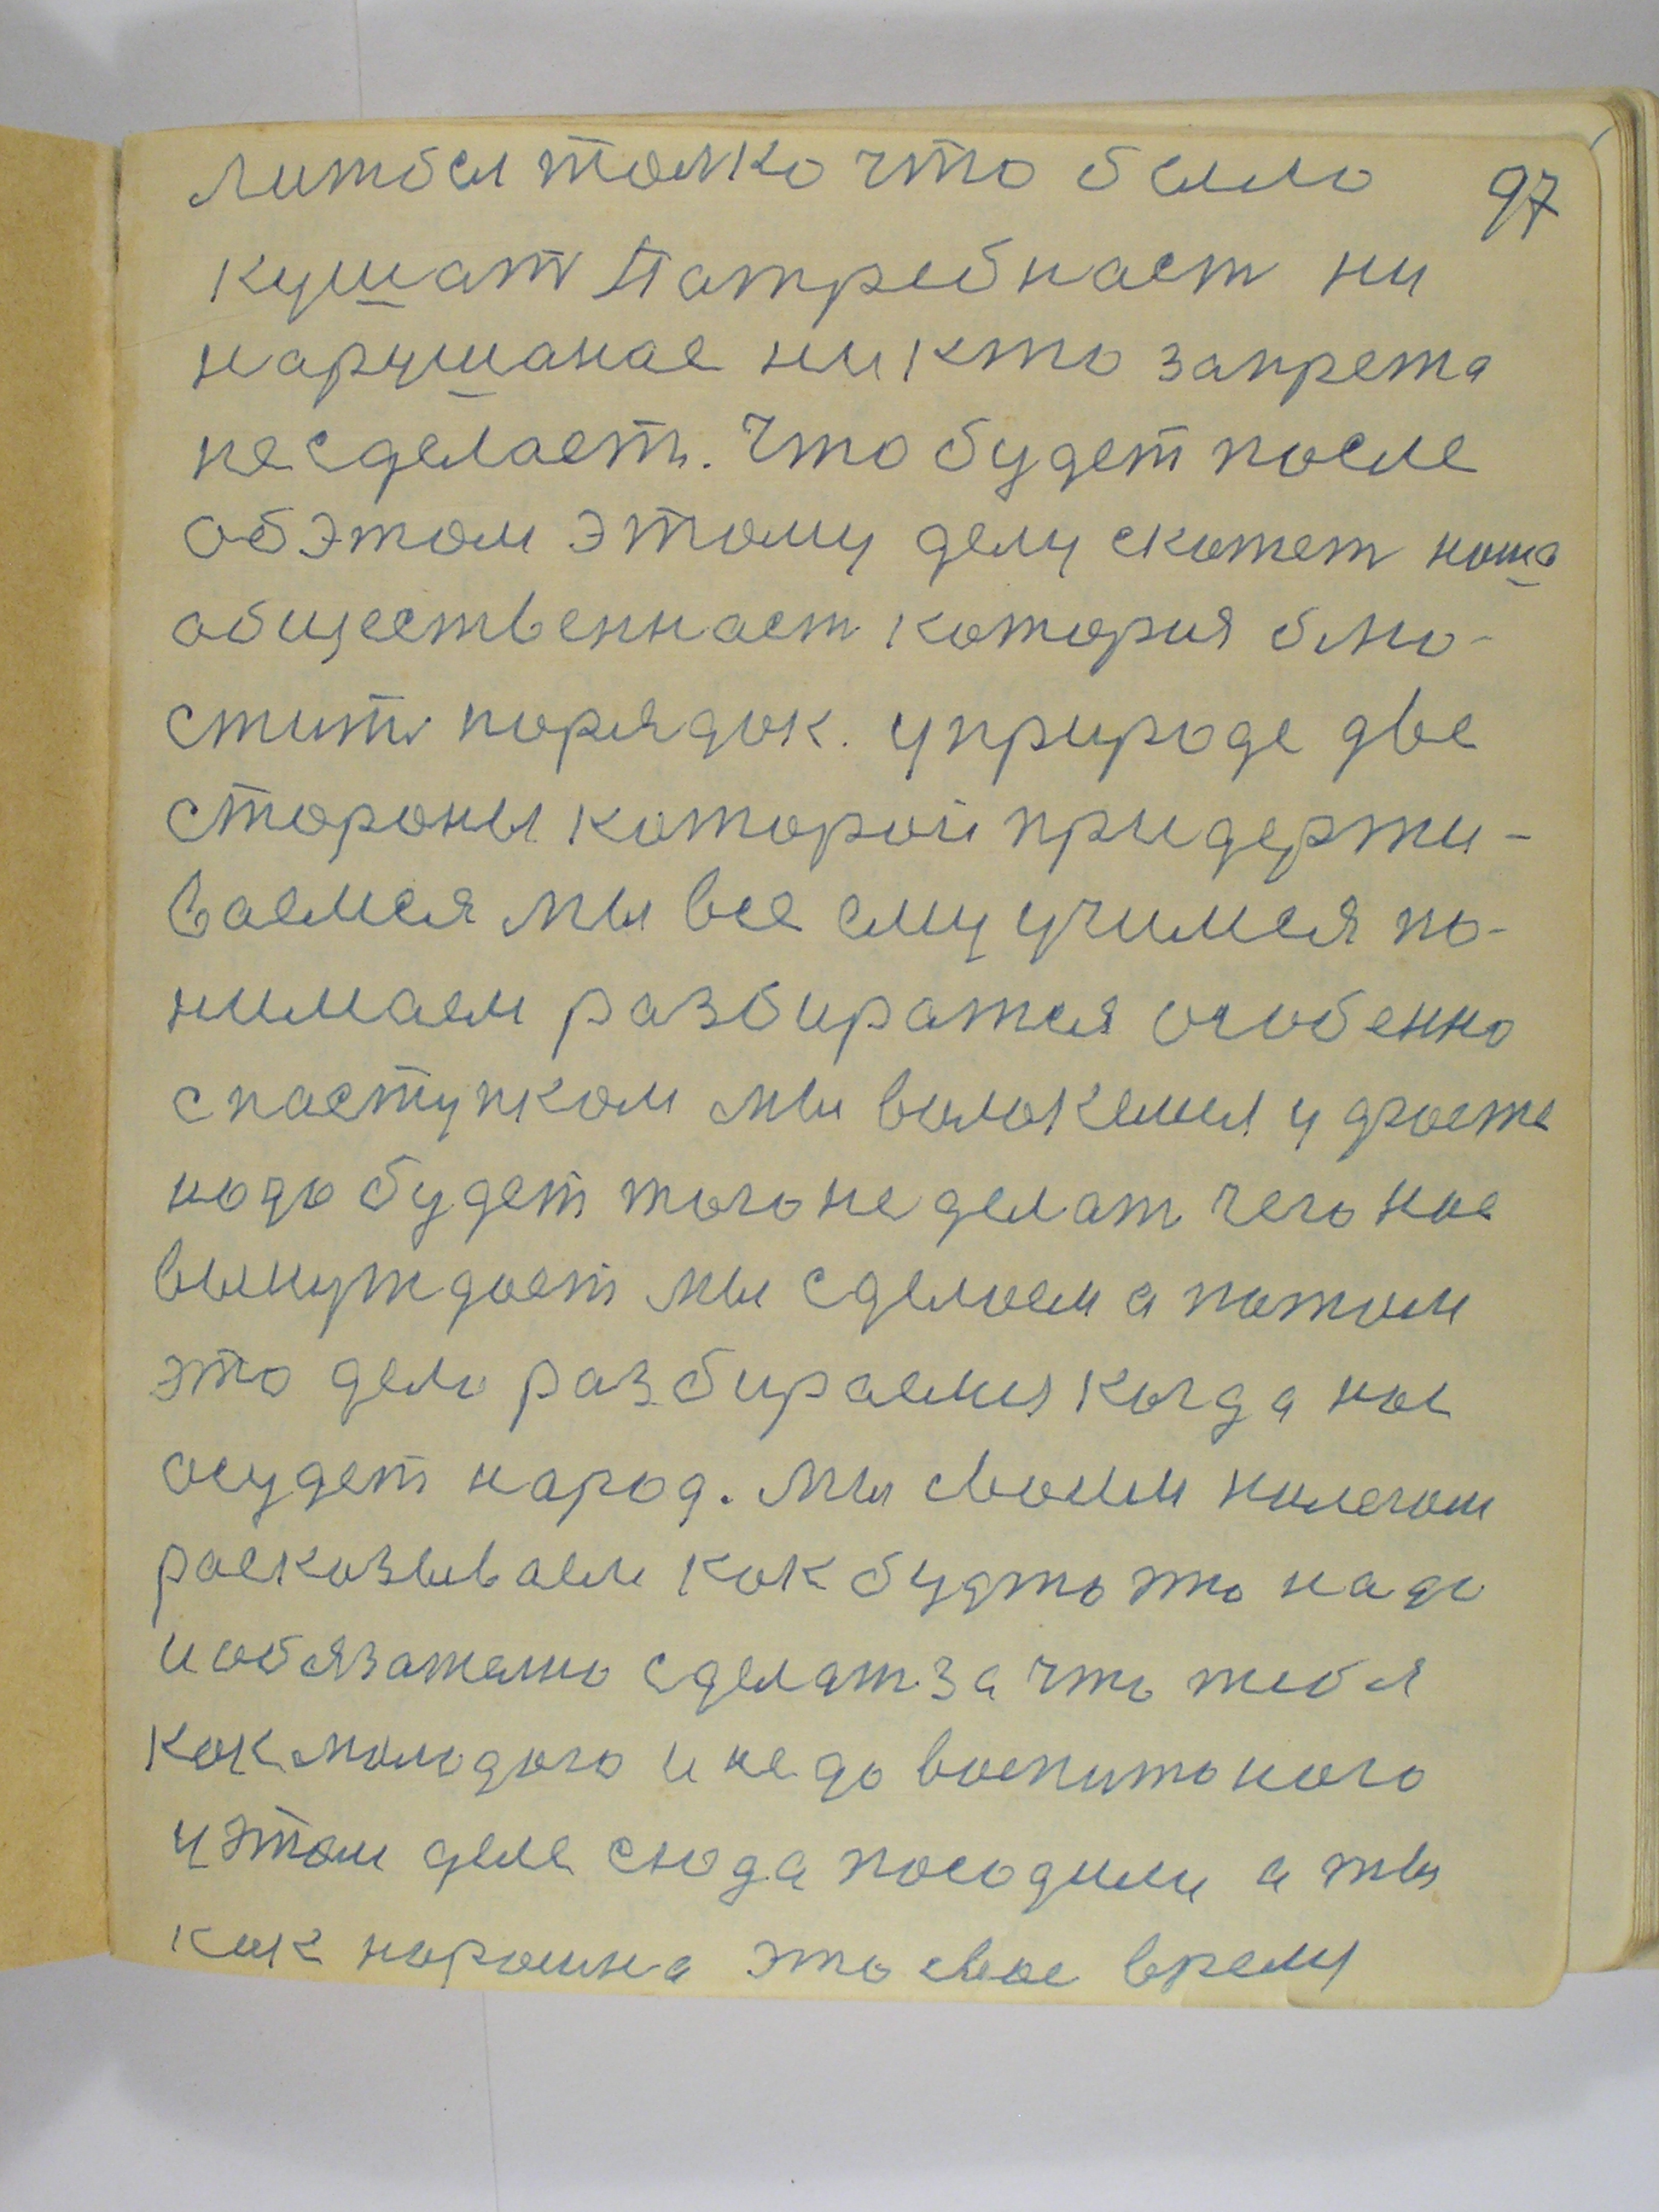 97
литбы толко что было
кушат Патребнаст ни
нарушаная ни кто запрета
несделает. Что будет после
обэтом этому делу скажет наша
общественнаст которая блю-
стит порядок. у природе две
стороны которой придержи-
ваемся мы все ему учимся по-
нимаем разбиратся особенно
с паступком мы волокемся у драстя
надо будет того не делат чего нас
вынуждает мы сделаем а потом
это дело разбираемся когда нас
осудет народ. Мы своим колегам
расказываем как будто это надо
и обязателно сделат за что тебя
как молодого и недо воспитоного
у этом деле сюда посодили а ты
как нарошна это свое время